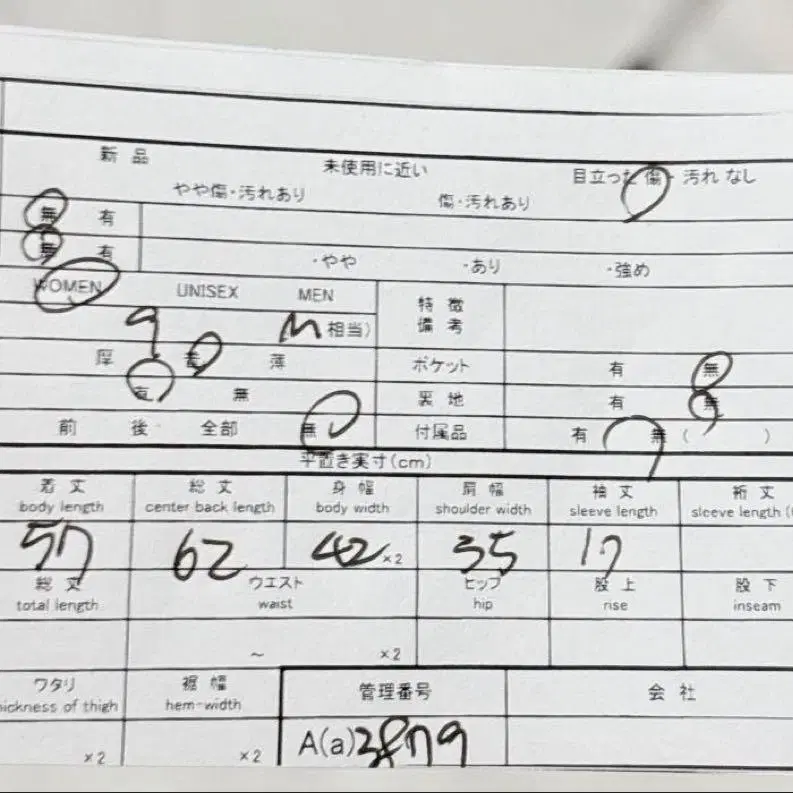 新品 未使用に近い 目立った 傷・汚れ なし
やや傷・汚れあり 傷・汚れあり
無 有
無 有 ・やや ・あり ・強め
WOMEN UNISEX MEN 特徴
備考
9 M相当)
厚 普 薄 ポケット 有 無
有 無 裏地 有 無
前 後 全部 無 付属品 有 無 ( )
平置き実寸(cm)
着丈 総丈 身幅 肩幅 袖丈 裄丈
body length center back length body width shoulder width sleeve length sleeve length (
57 62 42 ×2 35 17
総丈 ウエスト ヒップ 股上 股下
total length waist hip rise inseam
～ ×2
ワタリ 裾幅 管理番号 会社
hickness of thigh hem-width
×2 ×2 A(a)3879